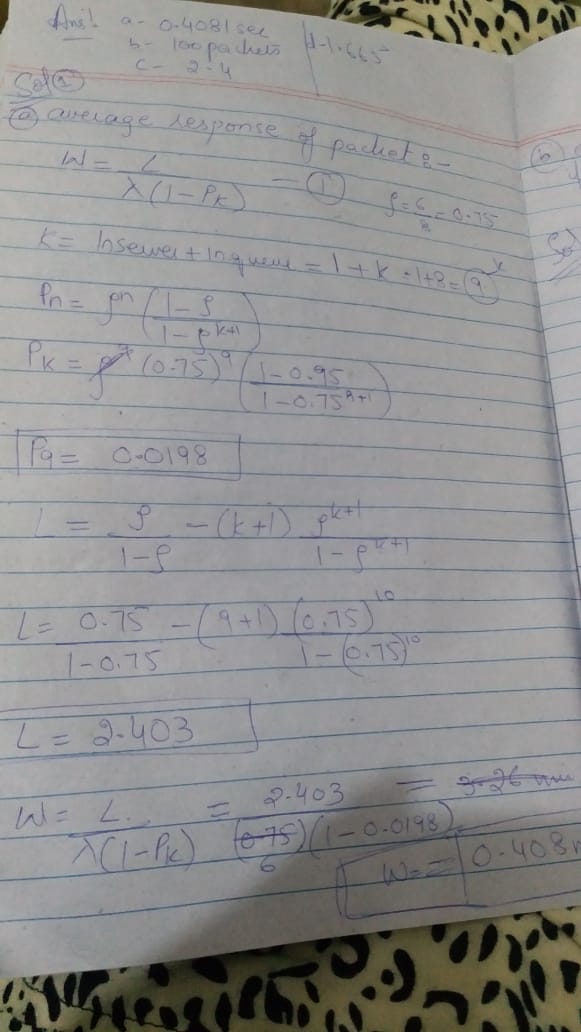 Ans:- a- 0.4081 sec
b- 100 packets
c- 2.4
d-1.665
Sol ①
ⓐ average response of packet :-
W = L / λ(1-Pk) - ①
ρ = 6/8 = 0.75
K = Inserver + Inqueue = 1 + K = 1+8 = 9
Pn = ρn (1-ρ / 1-ρk+1)
Pk = (0.75)9 (1-0.95 / 1-0.759+1)
P9 = 0.0198
L = ρ / 1-ρ - (k+1) ρk+1 / 1-ρk+1
L = 0.75 / 1-0.75 - (9+1) (0.75)10 / 1-(0.75)10
L = 2.403
W = L / λ(1-Pk) = 2.403 / (6)(1-0.0198) =
W = = 0.408
ⓑ
Sol